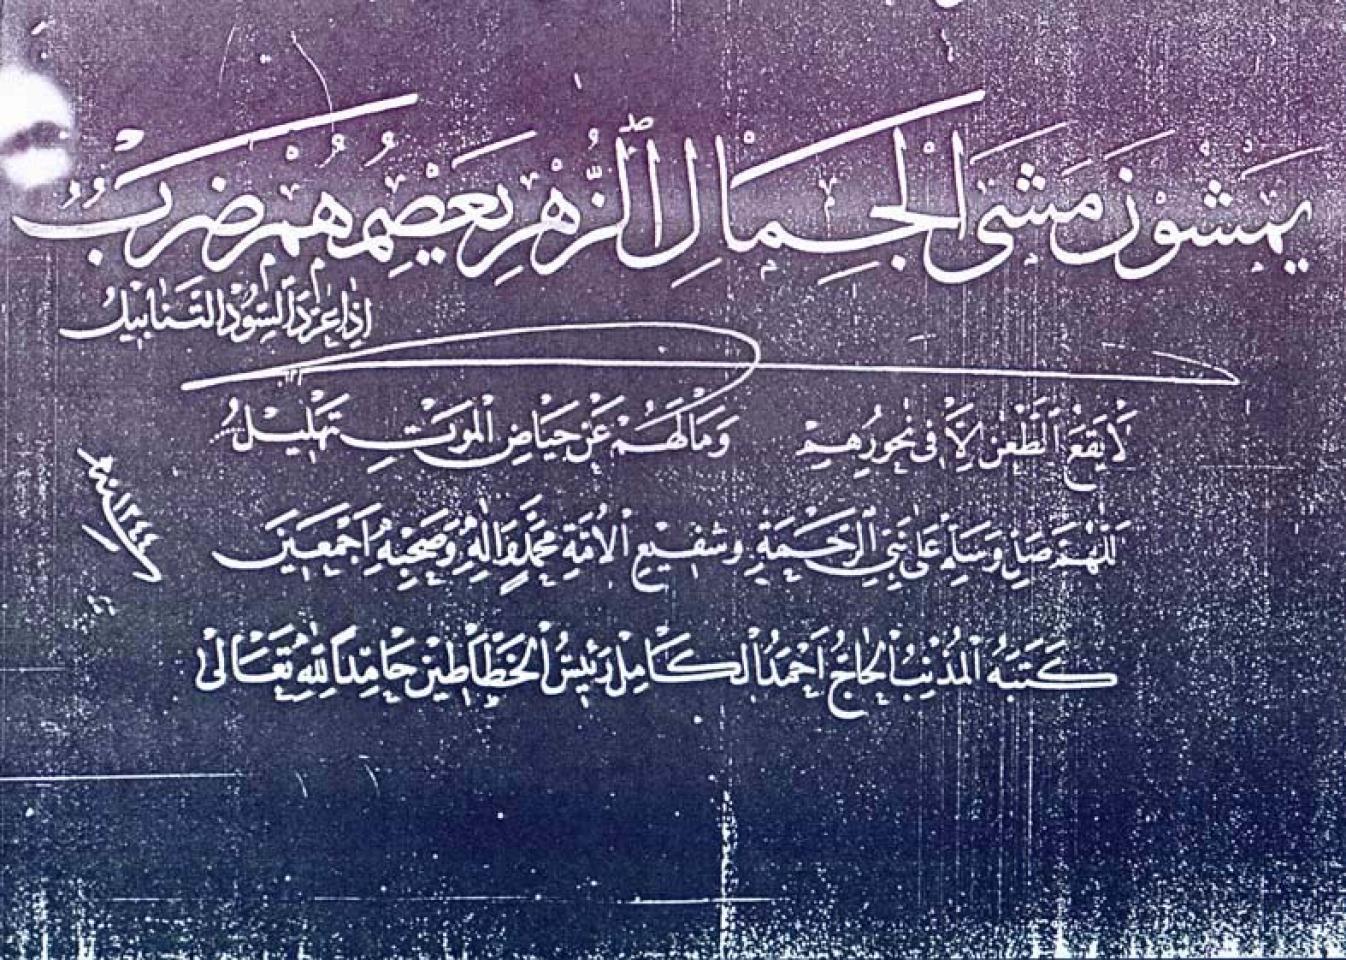 يَمْشُونَ مَشْيَ الْجِمَالِ الزُّهْرِ يَعْصِمُهُمْ ضَرْبٌ
إِذَا عَرَّدَ السُّودُ التَّنَابِيلُ
لَا يَقَعُ الطَّعْنُ إِلَّا فِي نُحُورِهِمْ وَمَا لَهُمْ عَنْ حِيَاضِ الْمَوْتِ تَهْلِيلُ
اَللّٰهُمَّ صَلِّ وَسَلِّمْ عَلَى نَبِيِّ الرَّحْمَةِ وَشَفِيعِ الْاُمَّةِ مُحَمَّدٍ وَاٰلِهِ وَصَحْبِهِ اَجْمَعِينَ
كَتَبَهُ الْمُذْنِبُ الْحَاجُّ اَحْمَدُ الْكَامِلْ رَئِيسُ الْخَطَّاطِينْ حَامِدًا لِلّٰهِ تَعَالَى
سنه ١٣٤٤